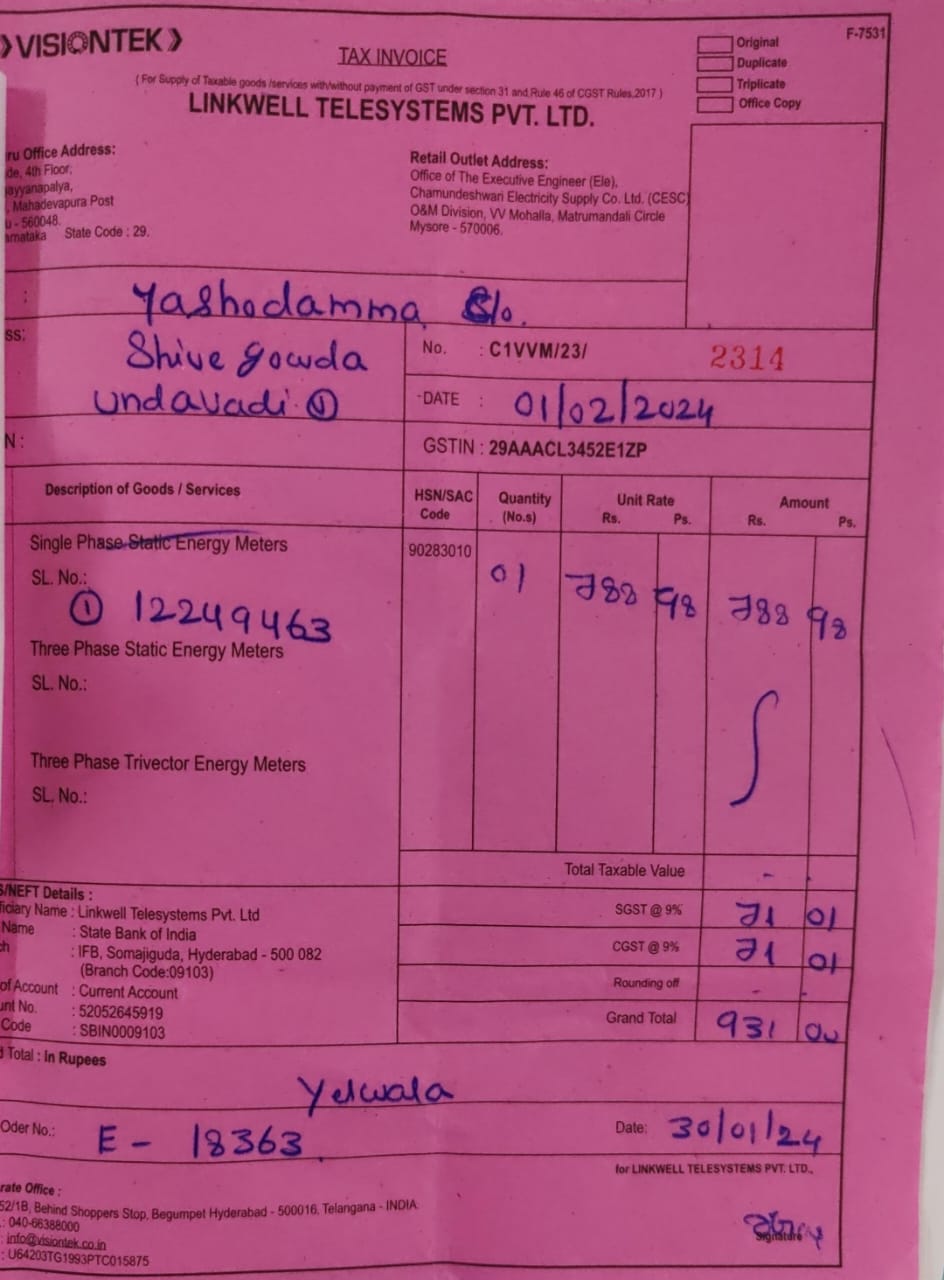 VISIONTEK
TAX INVOICE
Original
Duplicate
Triplicate
Office Copy
F-7531
( For Supply of Taxable goods /services with/without payment of GST under section 31 and Rule 46 of CGST Rules,2017 )
LINKWELL TELESYSTEMS PVT. LTD.
ru Office Address:
de, 4th Floor,
ayyanapalya,
, Mahadevapura Post
u - 560048.
arnataka State Code : 29.
Retail Outlet Address:
Office of The Executive Engineer (Ele),
Chamundeshwari Electricity Supply Co. Ltd. (CESC)
O&M Division, VV Mohalla, Matrumandali Circle
Mysore - 570006.
: Yashodamma S/o.
ss: Shive gowda
undavadi ①
No. : C1VVM/23/ 2314
-DATE : 01/02/2024
N :
GSTIN : 29AAACL3452E1ZP
Description of Goods / Services
HSN/SAC Code
Quantity (No.s)
Unit Rate
Rs. Ps.
Amount
Rs. Ps.
Single Phase Static Energy Meters
90283010 01 788 98 788 98
SL. No.:
① 12249463
Three Phase Static Energy Meters
SL. No.:
Three Phase Trivector Energy Meters
SL. No.:
Total Taxable Value - .
S/NEFT Details :
ficiary Name : Linkwell Telesystems Pvt. Ltd
Name : State Bank of India
ch : IFB, Somajiguda, Hyderabad - 500 082
(Branch Code:09103)
of Account : Current Account
unt No. : 52052645919
Code : SBIN0009103
SGST @ 9% 71 01
CGST @ 9% 71 01
Rounding off - .
Grand Total 931 00
d Total : In Rupees
Yelwala
Oder No.: E - 18363
Date: 30/01/24
for LINKWELL TELESYSTEMS PVT. LTD.,
rate Office :
52/1B, Behind Shoppers Stop, Begumpet Hyderabad - 500016. Telangana - INDIA
.: 040-66388000
: info@visiontek.co.in
: U64203TG1993PTC015875
Signature